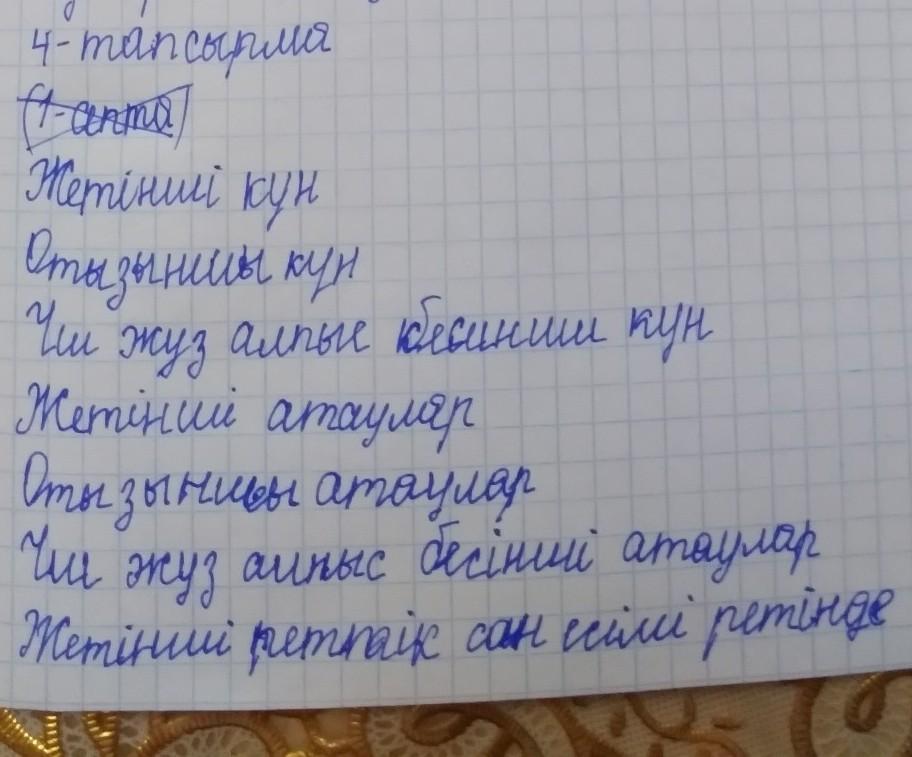 4-тапсырма
1-апта
Жетінші кун
Отызыншы кун
Үш жуз алпыс бесинши кун
Жетінші атаулар
Отызыншы атаулар
Үш жуз алпыс бесінші атаулар
Жетінші реттік сан есімі ретінде